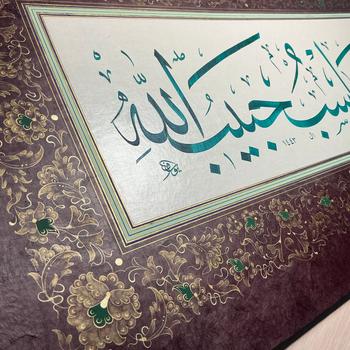 اسب حبيب الله
١٤٤٣